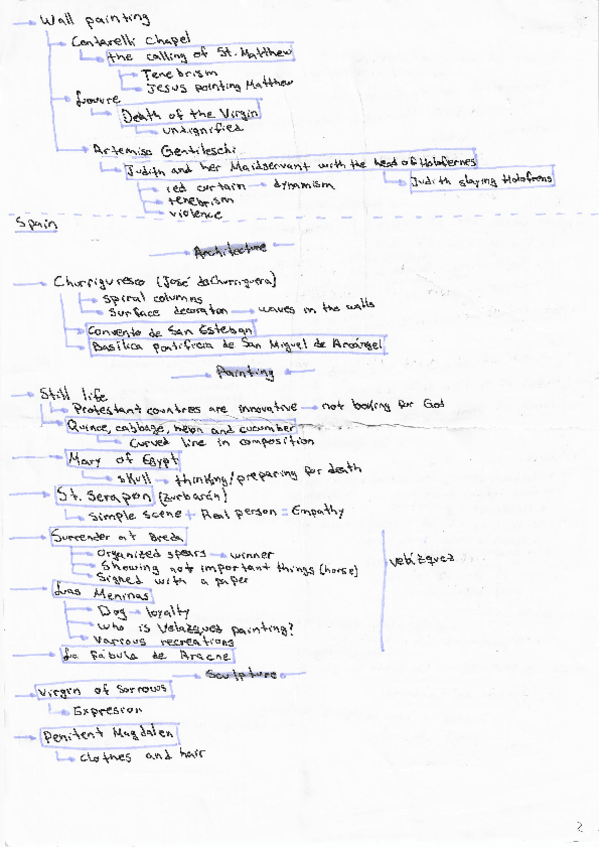 Wall painting
Contarelli Chapel
the calling of St. Matthew
Tenebrism
Jesus pointing Matthew
Louvre
Death of the Virgin
undignified
Artemisa Gentileschi
Judith and her Maidservant with the head of Holofernes
red curtain dynamism
Judith slaying Holofrens
tenebrism
violence
Spain
Architecture
Churriguresco (José deChurriguera)
Spiral columns
Surface decoration waves in the walls
Convento de San Esteban
Basílica pontificia de San Miguel de Arcángel
Painting
Still life
Protestant countres are innovative not looking for God
Quince, cabbage, melon and cucumber
Curved line in composition
Mary of Egypt
skull thinking/preparing for death
St. Serapon (Zurbarán)
Simple scene + Real person = Empathy
Surrender at Breda
Organized spears winner
Showing not important things (horse)
Signed with a paper
Velázquez
Las Meninas
Dog loyalty
who is Velazquez painting?
Various recreations
La fábula de Aracne
Sculpture
Virgin of Sorrows
Expresion
Penitent Magdalen
clothes and hair
2